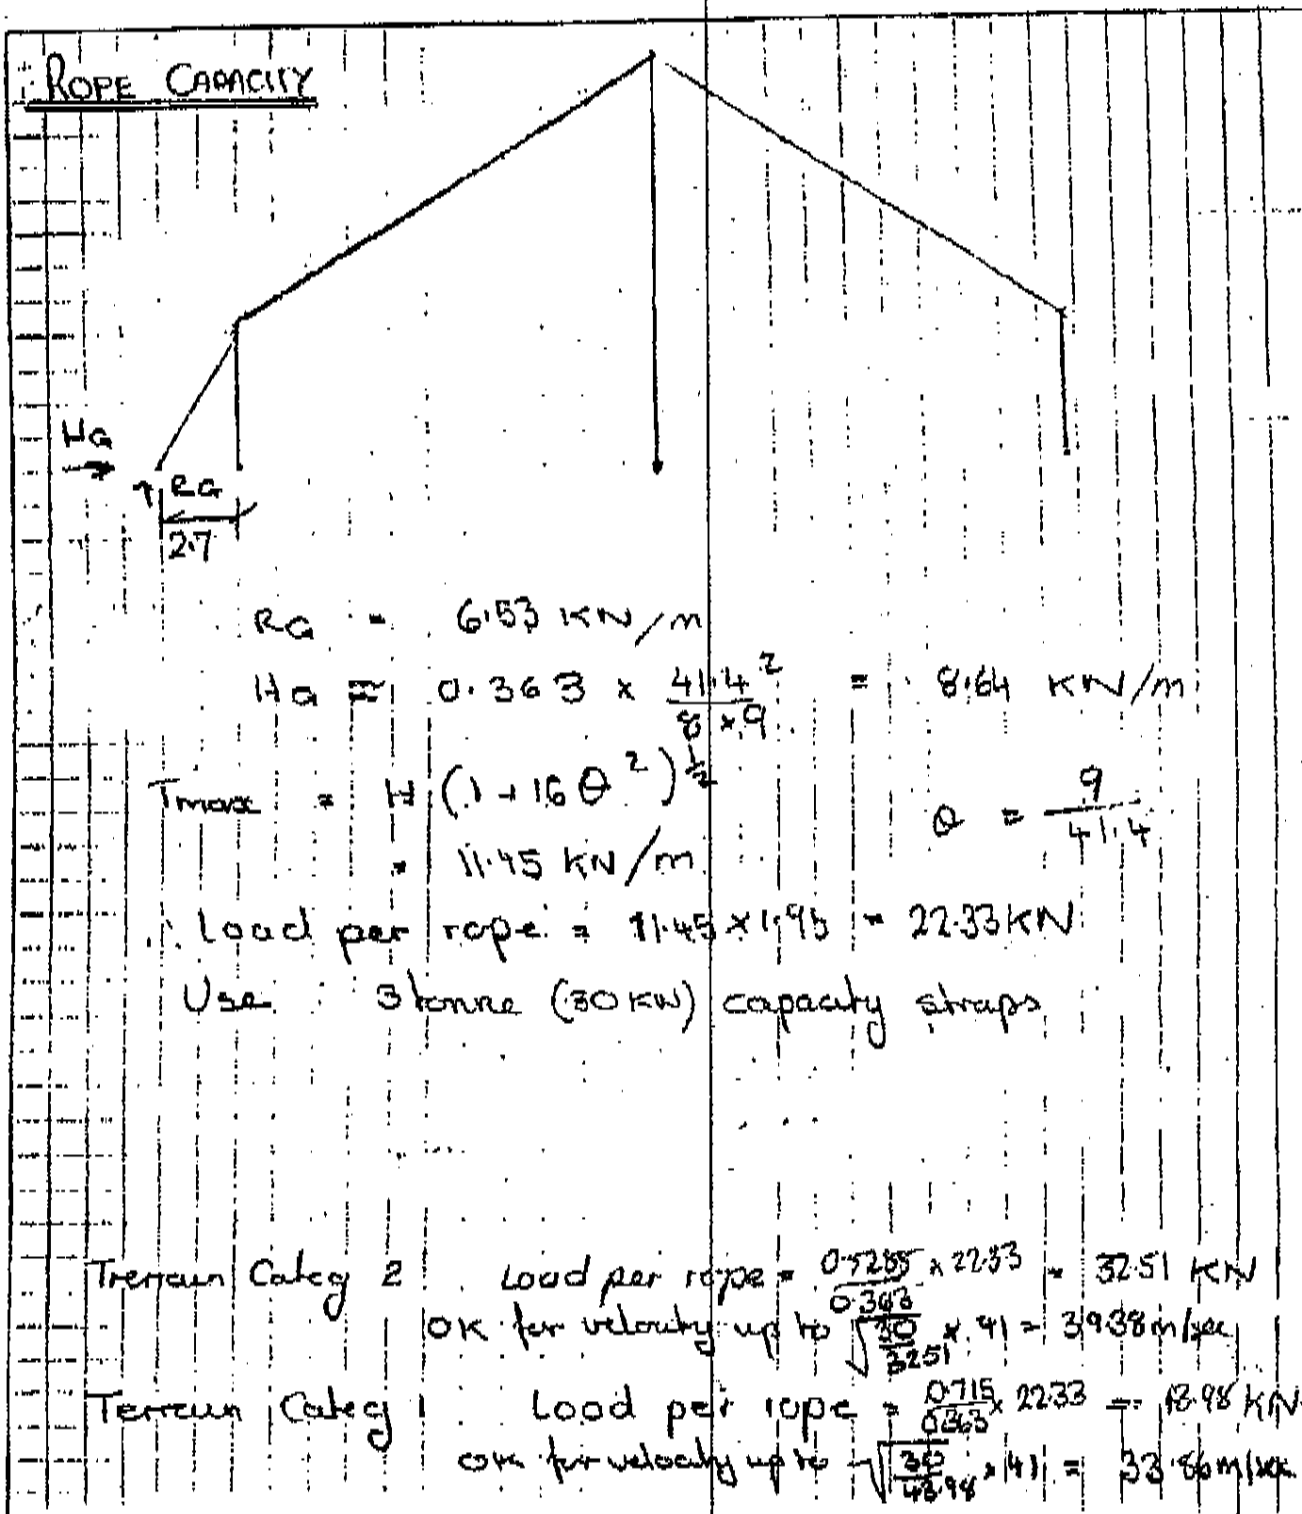 ROPE CAPACITY
HG
RG
2.7
RG = 6.53 KN/m
HG = 0.363 x 41.4² / 8 x 9 = 8.64 KN/m
Tmax = H (1 + 16 θ²)^½ θ = 9 / 41.4
= 11.45 KN/m
∴ Load per rope = 11.45 x 1.95 = 22.33 KN
Use 3 tonne (30 KN) capacity straps
Terrain Categ 2 Load per rope = 0.5285 / 0.363 x 22.33 = 32.51 KN
OK for velocity up to √(30 / 32.51) x 41 = 39.38 m/sec
Terrain Categ 1 Load per rope = 0.715 / 0.363 x 22.33 = 43.98 KN
OK for velocity up to √(30 / 43.98) x 41 = 33.86 m/sec